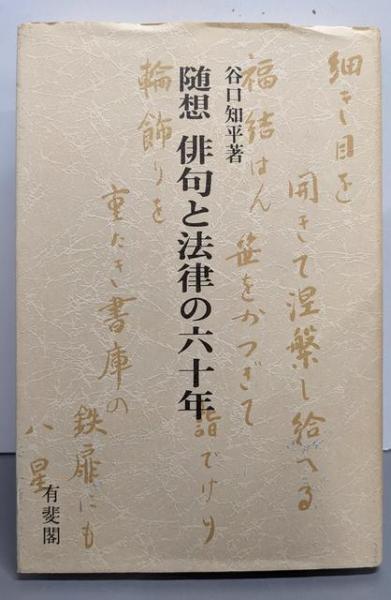 谷口知平著
随想 俳句と法律の六十年
細き目を
開きて涅槃し給へる
福結はん 笹をかつぎて
詣でけり
輪飾りを
重たき書庫の
鉄扉にも
八星
有斐閣